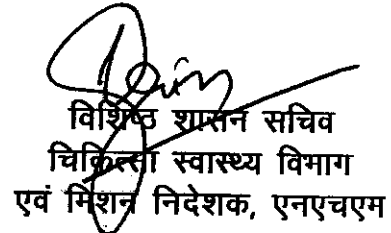 विशिष्ठ शासन सचिव
चिकित्सा स्वास्थ्य विभाग
एवं मिशन निदेशक, एनएचएम